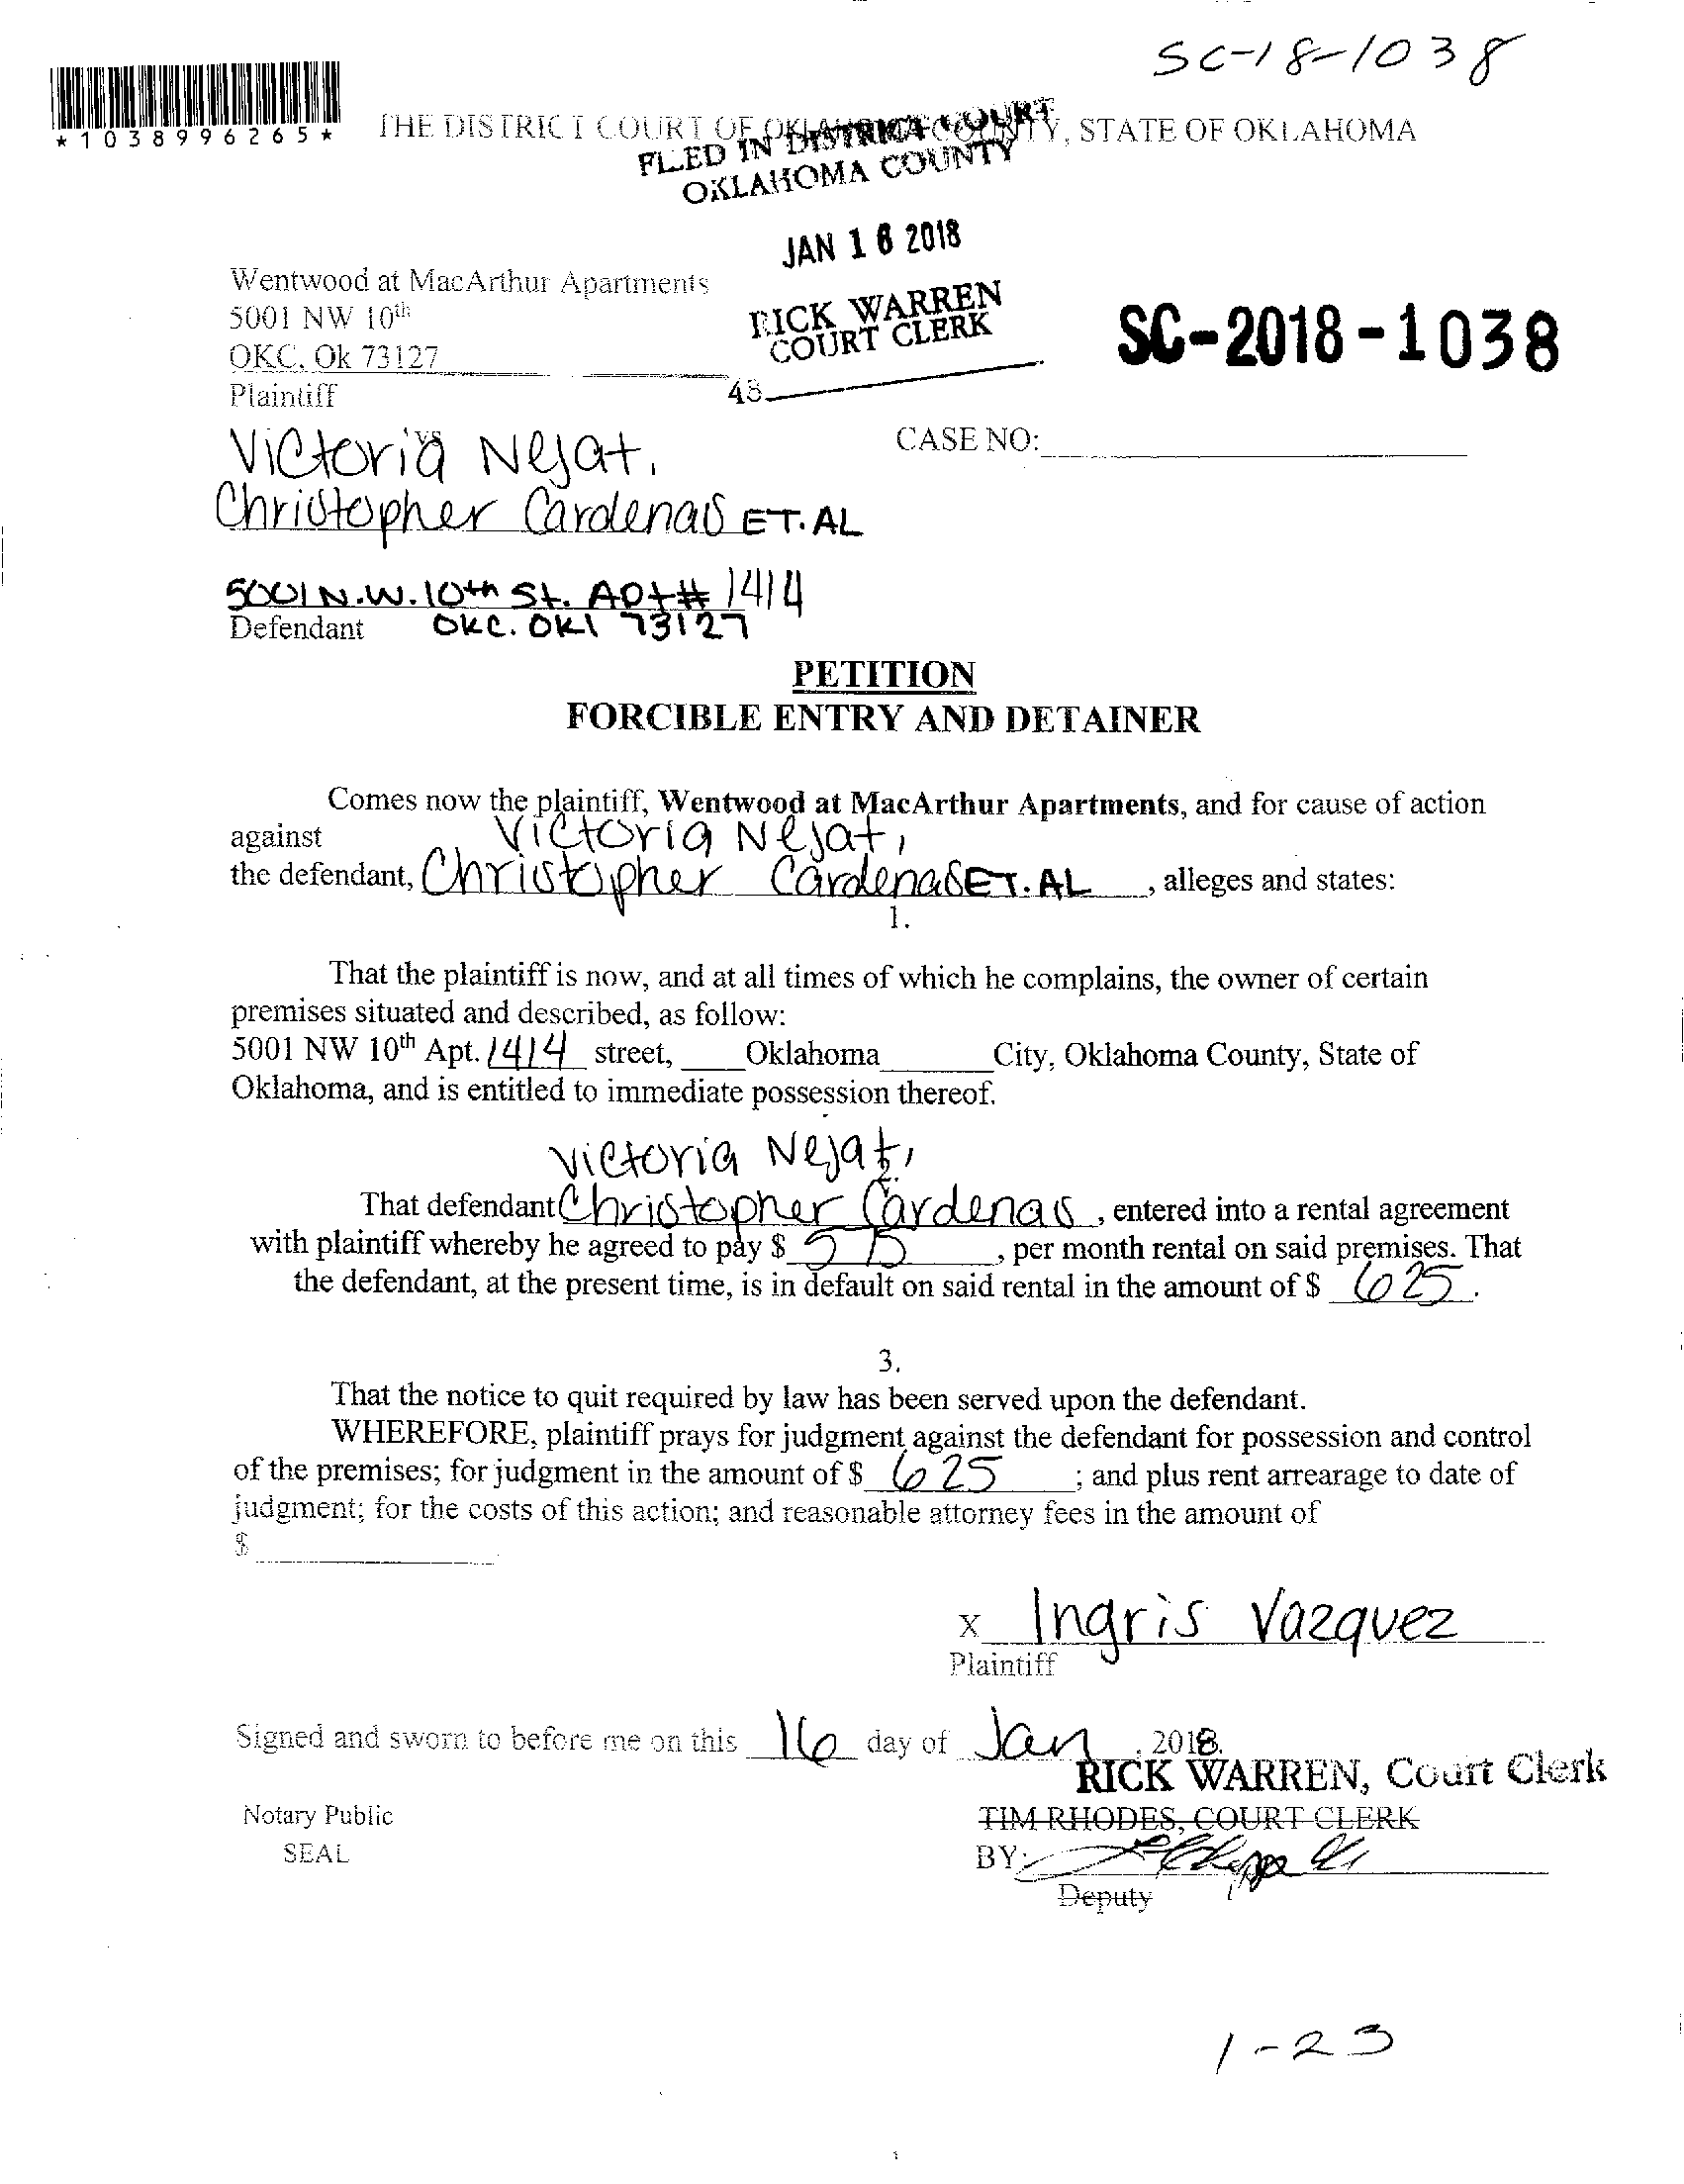 SC-18-1038
*1038996265*
THE DISTRICT COURT OF OKLAHOMA COUNTY, STATE OF OKLAHOMA
FILED IN DISTRICT COURT
OKLAHOMA COUNTY
JAN 16 2018
RICK WARREN
COURT CLERK
48
SC-2018-1038
Wentwood at MacArthur Apartments
5001 NW 10th
OKC, Ok 73127
Plaintiff
vs
CASE NO:
Victoria Nejat,
Christopher Cardenas ET. AL
5001 N.W. 10th St. Apt# 1414
Defendant OKC. OKl 73127
PETITION
FORCIBLE ENTRY AND DETAINER
Comes now the plaintiff, Wentwood at MacArthur Apartments, and for cause of action
against Victoria Nejat,
the defendant, Christopher Cardenas ET. AL, alleges and states:
1.
That the plaintiff is now, and at all times of which he complains, the owner of certain
premises situated and described, as follow:
5001 NW 10th Apt. 1414 street, Oklahoma City, Oklahoma County, State of
Oklahoma, and is entitled to immediate possession thereof.
Victoria Nejat,
2.
That defendant Christopher Cardenas, entered into a rental agreement
with plaintiff whereby he agreed to pay $ , per month rental on said premises. That
the defendant, at the present time, is in default on said rental in the amount of $ 625.
3.
That the notice to quit required by law has been served upon the defendant.
WHEREFORE, plaintiff prays for judgment against the defendant for possession and control
of the premises; for judgment in the amount of $ 625 ; and plus rent arrearage to date of
judgment; for the costs of this action; and reasonable attorney fees in the amount of
$
x Ingris Vazquez
Plaintiff
Signed and sworn to before me on this 16 day of Jan, 2018.
RICK WARREN, Court Clerk
Notary Public
TIM RHODES, COURT CLERK
SEAL
BY:
Deputy
1-23